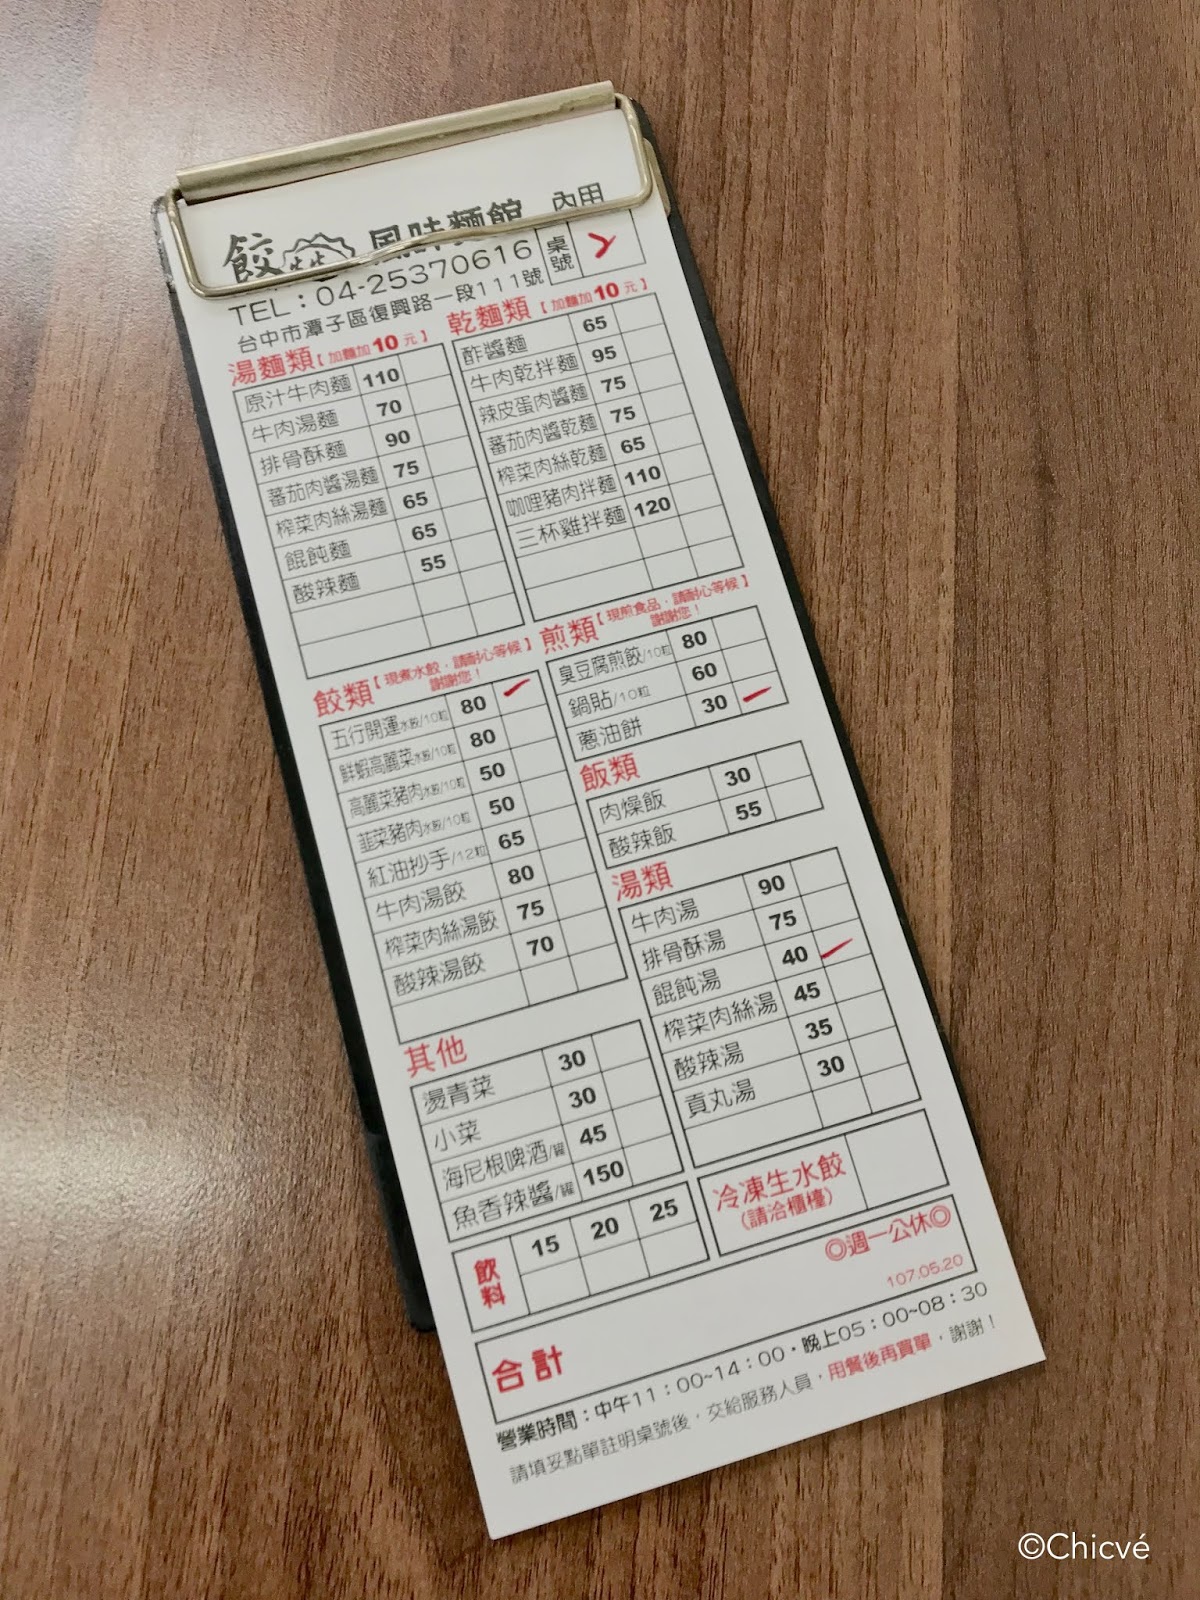 餃 風味麵館 內用
TEL：04-25370616
台中市潭子區復興路一段111號
桌號
湯麵類【加麵加10元】
原汁牛肉麵 110
牛肉湯麵 70
排骨酥麵 90
蕃茄肉醬湯麵 75
榨菜肉絲湯麵 65
餛飩麵 65
酸辣麵 55
乾麵類【加麵加10元】
酢醬麵 65
牛肉乾拌麵 95
辣皮蛋肉醬麵 75
蕃茄肉醬乾麵 75
榨菜肉絲乾麵 65
咖哩豬肉拌麵 110
三杯雞拌麵 120
餃類【現煮水餃．請耐心等候】
謝謝您！
五行開運水餃/10粒 80
鮮蝦高麗菜水餃/10粒 80
高麗菜豬肉水餃/10粒 50
韭菜豬肉水餃/10粒 50
紅油抄手/12粒 65
牛肉湯餃 80
榨菜肉絲湯餃 75
酸辣湯餃 70
煎類【現煎食品．請耐心等候】
謝謝您！
臭豆腐煎餃/10粒 80
鍋貼/10粒 60
蔥油餅 30
飯類
肉燥飯 30
酸辣飯 55
湯類
牛肉湯 90
排骨酥湯 75
餛飩湯 40
榨菜肉絲湯 45
酸辣湯 35
貢丸湯 30
其他
燙青菜 30
小菜 30
海尼根啤酒/罐 45
魚香辣醬/罐 150
飲料 15 20 25
冷凍生水餃
(請洽櫃檯)
◎週一公休◎
107.05.20
合計
營業時間：中午11：00~14：00・晚上05：00~08：30
請填妥點單註明桌號後，交給服務人員，用餐後再買單，謝謝！
©Chicvé